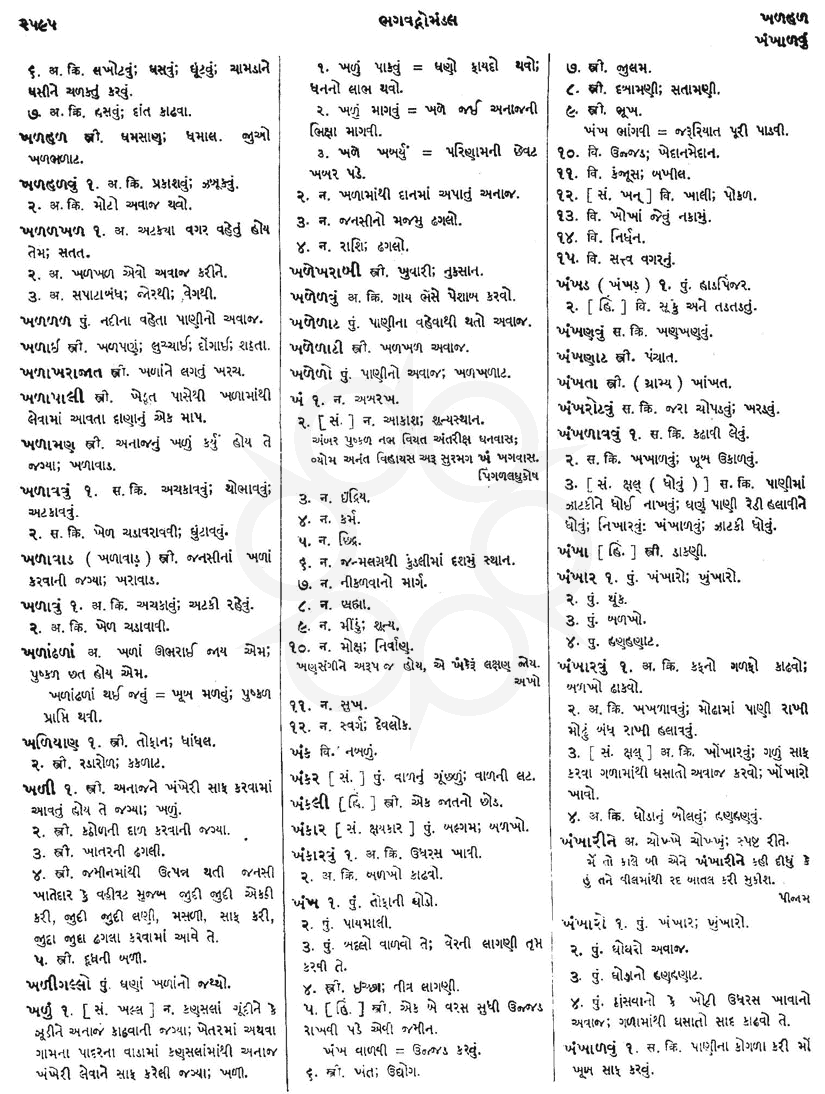 ૨૫૯૫
ભગવદ્ગોમંડલ
ખળહળ
ખંખાળવું
૬. અ. ક્રિ. લખોટવું; ઘસવું; ઘૂંટવું; ચામડાને
ઘસીને ચળકતું કરવું.
૭. અ. ક્રિ. હસવું; દાંત કાઢવા.
ખળહળ સ્ત્રી. ધમસાણ; ધમાલ. જુઓ
ખળભળાટ.
ખળહળવું ૧. અ. ક્રિ. પ્રકાશવું; ઝબૂકવું.
૨. અ. ક્રિ. મોટો અવાજ થવો.
ખળળખળ ૧. અ. અટક્યા વગર વહેતું હોય
તેમ; સતત.
૨. અ. ખળખળ એવો અવાજ કરીને.
૩. અ. સપાટાબંધ; જોરથી; વેગથી.
ખળળળ પું. નદીના વહેતા પાણીનો અવાજ.
ખળાઈ સ્ત્રી. ખળપણું; લુચ્ચાઈ; દોંગાઈ; શઠતા.
ખળાખરાજાત સ્ત્રી. ખળાંને લગતું ખરચ.
ખળાપાલી સ્ત્રી. ખેડૂત પાસેથી ખળામાંથી
લેવામાં આવતા દાણાનું એક માપ.
ખળામણ સ્ત્રી. અનાજનું ખળું કર્યું હોય તે
જગ્યા; ખળાવાડ.
ખળાવવું ૧. સ. ક્રિ. અચકાવવું; થોભાવવું;
અટકાવવું.
૨. સ. ક્રિ. ખેળ ચડાવરાવવી; ઘુંટાવવું.
ખળાવાડ ( ખળાવાડ઼ ) સ્ત્રી. જનસીનાં ખળાં
કરવાની જગ્યા; ખરાવાડ.
ખળાવું ૧. અ. ક્રિ. અચકાવું; અટકી રહેવું.
૨. અ. ક્રિ. ખેળ ચડાવાવી.
ખળાંઢળાં અ. ખળાં ઊભરાઈ જાય એમ;
પુષ્કળ છત હોય એમ.
ખળાંઢળાં થઈ જવું = ખૂબ મળવું; પુષ્કળ
પ્રાપ્તિ થવી.
ખળિયાણ ૧. સ્ત્રી. તોફાન; ધાંધલ.
૨. સ્ત્રી. રડારોળ; કકળાટ.
ખળી ૧. સ્ત્રી. અનાજને ખંખેરી સાફ કરવામાં
આવતું હોય તે જગ્યા; ખળું.
૨. સ્ત્રી. કઠોળની દાળ કરવાની જગ્યા.
૩. સ્ત્રી. ખાતરની ઢગલી.
૪. સ્ત્રી. જમીનમાંથી ઉત્પન્ન થતી જનસી
ખાતેદાર કે વહીવટ મુજબ જુદી જુદી એકઠી
કરી, જુદી જુદી લણી, મસળી, સાફ કરી,
જુદા જુદા ઢગલા કરવામાં આવે તે.
૫. સ્ત્રી. દૂધની બળી.
ખળીગલ્લો પું. ઘણાં ખળાંનો જથ્થો.
ખળું ૧. [ સં. ખલ્લ ] ન. કણસલાં ગૂંદીને કે
ઝૂડીને અનાજ કાઢવાની જગ્યા; ખેતરમાં અથવા
ગામના પાદરના વાડામાં કણસલાંમાંથી અનાજ
ખંખેરી લેવાને સાફ કરેલી જગ્યા; ખળી.
૧. ખળું પાકવું = ઘણો ફાયદો થવો;
ધનનો લાભ થવો.
૨. ખળું માગવું = ખળે જઈ અનાજની
ભિક્ષા માગવી.
૩. ખળે ખબર્યું = પરિણામની છેવટ
ખબર પડે.
૨. ન. ખળામાંથી દાનમાં અપાતું અનાજ.
૩. ન. જનસીનો મજમુ ઢગલો.
૪. ન. રાશિ; ઢગલો.
ખળેખરાબી સ્ત્રી. ખુવારી; નુકસાન.
ખળેળવું અ. ક્રિ. ગાય ભેંસે પેશાબ કરવો.
ખળેળાટ પું. પાણીના વહેવાથી થતો અવાજ.
ખળેળાટી સ્ત્રી. ખળખળ અવાજ.
ખળેળો પું. પાણીનો અવાજ; ખળખળાટ.
ખં ૧. ન. અબરખ.
૨. [ સં. ] ન. આકાશ; શૂન્યસ્થાન.
અંબર પુષ્કળ નભ વિયત અંતરીક્ષ ઘનવાસ;
વ્યોમ અનંત વિહાયસ અરૂ સુરમગ ખં ખગવાસ.
પિંગળલઘુકોષ
૩. ન. ઇંદ્રિય.
૪. ન. કર્મ.
૫. ન. છિદ્ર.
૬. ન. જન્મલગ્નથી કુંડલીમાં દશમું સ્થાન.
૭. ન. નીકળવાનો માર્ગ.
૮. ન. બ્રહ્મા.
૯. ન. મીંડું; શૂન્ય.
૧૦. ન. મોક્ષ; નિર્વાણ.
ખણસંગીને અરૂપ જ હોય, એ ખંકેરું લક્ષણ જોય.
અખો
૧૧. ન. સુખ.
૧૨. ન. સ્વર્ગ; દેવલોક.
ખંક વિ. નબળું.
ખંકર [ સં. ] પું. વાળનું ગૂંછળું; વાળની લટ.
ખંકલી [ હિં. ] સ્ત્રી. એક જાતનો છોડ.
ખંકાર [ સં. ક્ષયકાર ] પું. બલ્ગમ; બળખો.
ખંકારવું ૧. અ. ક્રિ. ઉધરસ ખાવી.
૨. અ. ક્રિ. બળખો કાઢવો.
ખંખ ૧. પું. તોફાની ઘોડો.
૨. પું. પાયમાલી.
૩. પું. બદલો વાળવો તે; વેરની લાગણી તૃપ્ત
કરવી તે.
૪. સ્ત્રી. ઇચ્છા; તીવ્ર લાગણી.
૫. [ હિં. ] સ્ત્રી. એક બે વરસ સુધી ઉજ્જડ
રાખવી પડે એવી જમીન.
ખંખ વાળવી = ઉજ્જડ કરવું.
૬. સ્ત્રી. ખંત; ઉદ્યોગ.
૭. સ્ત્રી. જુલમ.
૮. સ્ત્રી. દબામણી; સતામણી.
૯. સ્ત્રી. ભૂખ.
ખંખ ભાંગવી = જરૂરિયાત પૂરી પાડવી.
૧૦. વિ. ઉજ્જડ; ખેદાનમેદાન.
૧૧. વિ. કંજૂસ; બખીલ.
૧૨. [ સં. ખન્ ] વિ. ખાલી; પોકળ.
૧૩. વિ. ખોખાં જેવું નકામું.
૧૪. વિ. નિર્ધન.
૧૫. વિ. સત્ત્વ વગરનું.
ખંખડ ( ખંખડ઼ ) ૧. પું. હાડપિંજર.
૨. [ હિં. ] વિ. સૂકું અને તડતડતું.
ખંખણવું સ. ક્રિ. ખણખણવું.
ખંખણાટ સ્ત્રી. પંચાત.
ખંખતા સ્ત્રી. ( ગ્રામ્ય ) ખાંખત.
ખંખરોટવું સ. ક્રિ. જરા ચોપડવું; ખરડવું.
ખંખળાવવું ૧. સ. ક્રિ. કઢાવી લેવું.
૨. સ. ક્રિ. ખખળાવવું; ખૂબ ઉકાળવું.
૩. [ સં. ક્ષલ્ ( ધોવું ) ] સ. ક્રિ. પાણીમાં
ઝાટકીને ધોઈ નાખવું; ઘણું પાણી રેડી હલાવીને
ધોવું; નિખારવું; ખંખાળવું; ઝાટકી ધોવું.
ખંખા [ હિં. ] સ્ત્રી. ડાકણી.
ખંખાર ૧. પું. ખંખારો; ખુંખારો.
૨. પું. થૂંક.
૩. પું. બળખો.
૪. પુ. હણહણાટ.
ખંખારવું ૧. અ. ક્રિ. કફનો ગળફો કાઢવો;
બળખો કાઢવો.
૨. અ. ક્રિ. ખખળાવવું; મોઢામાં પાણી રાખી
મોઢું બંધ રાખી હલાવવું.
૩. [ સં. ક્ષલ્ ] અ. ક્રિ. ખોંખારવું; ગળું સાફ
કરવા ગળામાંથી ઘસાતો અવાજ કરવો; ખોંખારો
ખાવો.
૪. અ. ક્રિ. ઘોડાનું બોલવું; હણહણવું.
ખંખારીને અ. ચોખ્ખે ચોખ્ખું; સ્પષ્ટ રીતે.
મેં તો કાલે બી એને ખંખારીને કહી દીધું કે
હું તને વીલમાંથી રદ બાતલ કરી મુકીશ.
પીજામ
ખંખારો ૧. પું. ખંખાર; ખુંખારો.
૨. પું. ઘોઘરો અવાજ.
૩. પું. ઘોડાનો હણહણાટ.
૪. પું. હાંસવાનો કે ખોટી ઉધરસ ખાવાનો
અવાજ; ગળામાંથી ઘસાતો સાદ કાઢવો તે.
ખંખાળવું ૧. સ. ક્રિ. પાણીના કોગળા કરી મોં
ખૂબ સાફ કરવું.